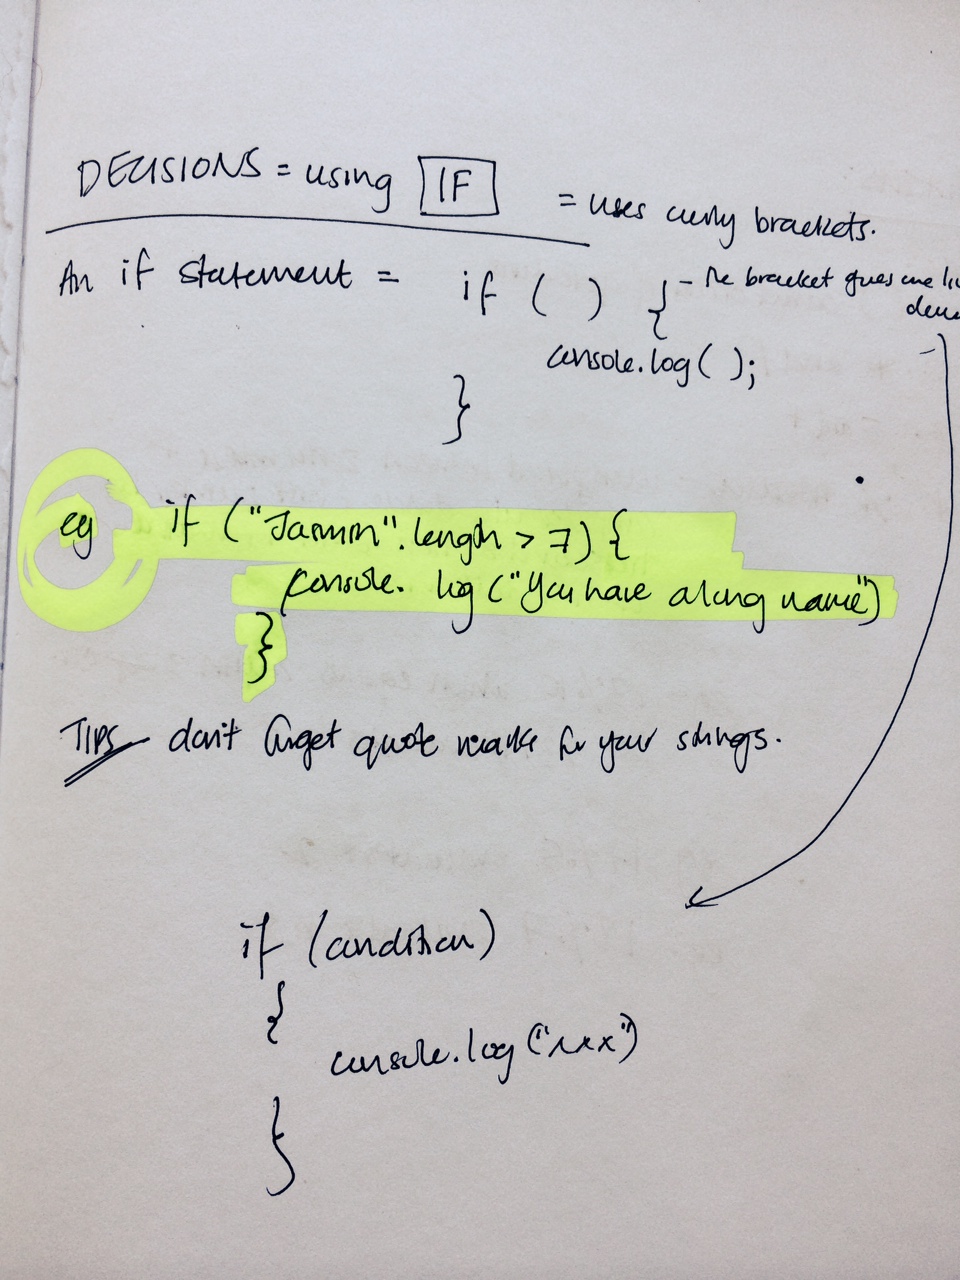 DECISIONS = using IF = uses curly brackets.
An if statement = if ( ) { - The bracket goes one
console.log( );
}
eg if ("Jammm".length > 7) {
console. log ("You have a long name")
}
TIPS don't forget quote marks for your strings.
if (condition)
{
console.log ("xxx")
}